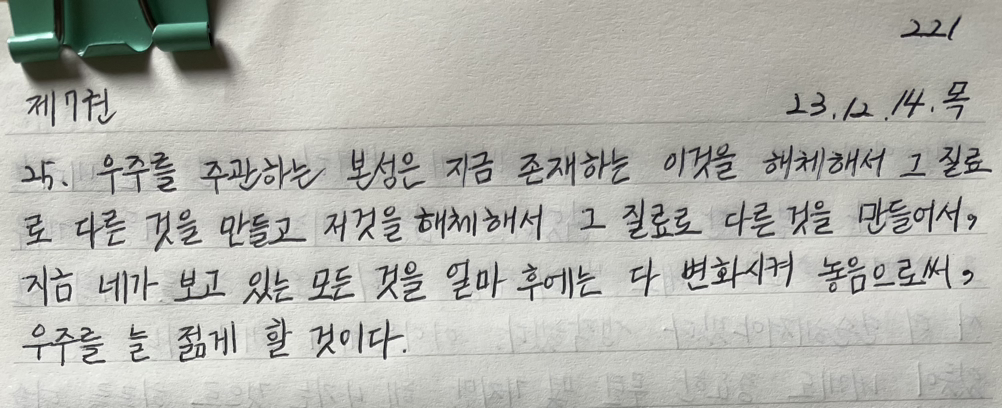 221
제7권 23.12.14.목
25. 우주를 주관하는 본성은 지금 존재하는 이것을 해체해서 그 질료
로 다른 것을 만들고 저것을 해체해서 그 질료로 다른 것을 만들어서,
지금 네가 보고 있는 모든 것을 얼마 후에는 다 변화시켜 놓음으로써,
우주를 늘 젊게 할 것이다.